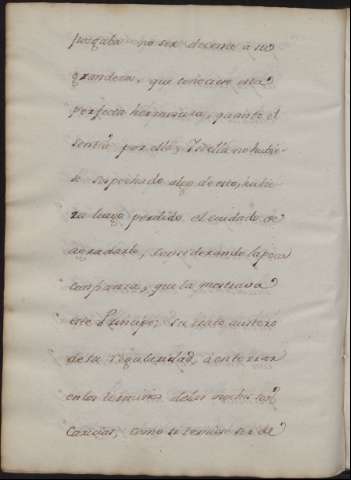 no ser decente à su
grandeza, que conociere esta
perfecta hermosura, quanto el
sentia por ella, y si ella no hubie-
se sospechado algo de esto, hubie-
ra luego perdido el cuidado de
agradarle, considerando la poca
confianza, que la mostraba
este Principe; su trato austero
de su regularidad,
en los terminos de las
Caricias, como si temiese ser de